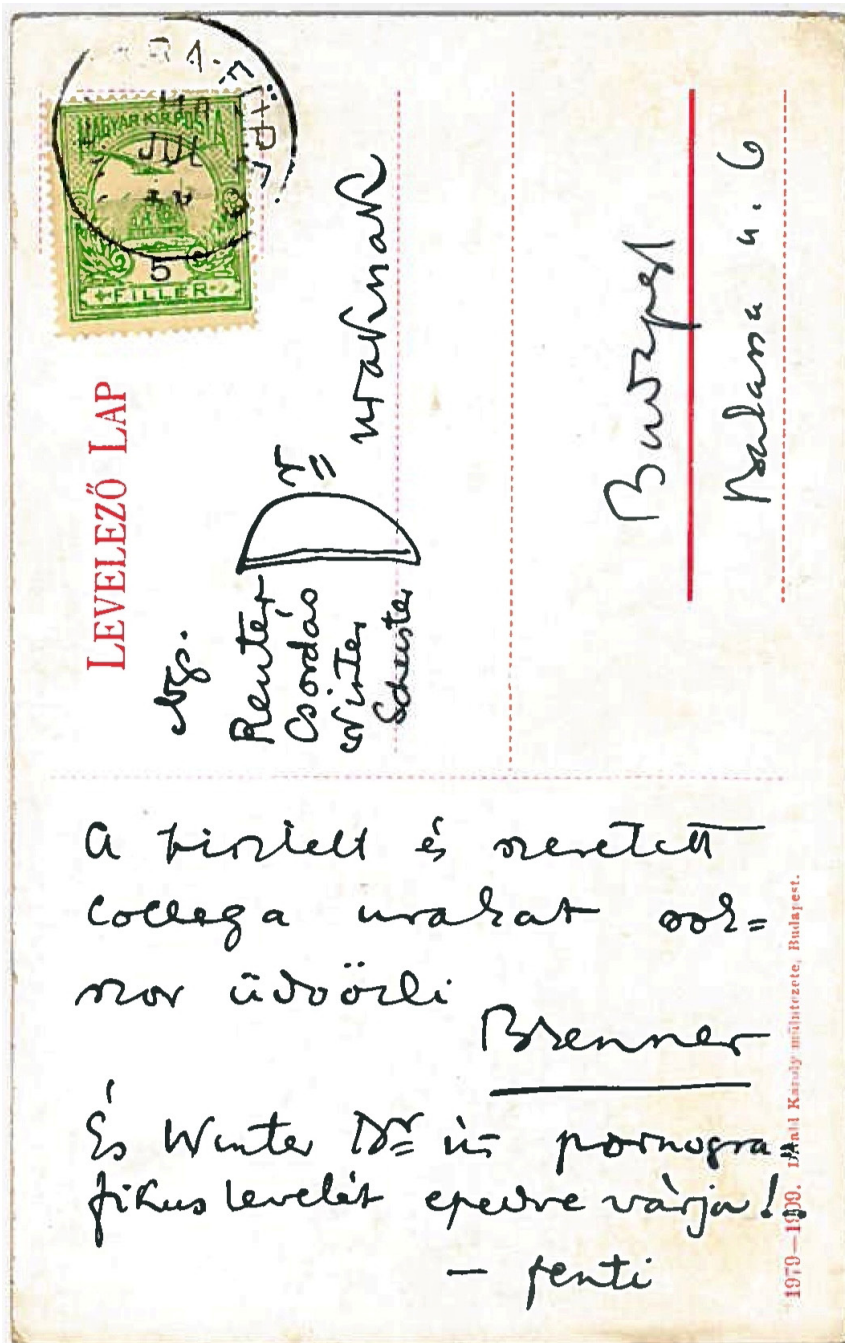 MAGYAR KIR. POSTA
JUL
5
FILLER
LEVELEZŐ LAP
Ngs.
Reuter
Csordás
Winter
Schuster
Dr
uraknak
Budapest
Balassa u. 6
A tisztelt és szeretett
collega urakat sok=
szor üdvözli
Brenner
És Winter Dr úr pornogra=
fikus levelét epedve várja!
— fenti
1979—1909. Divald Károly műintézete, Budapest.